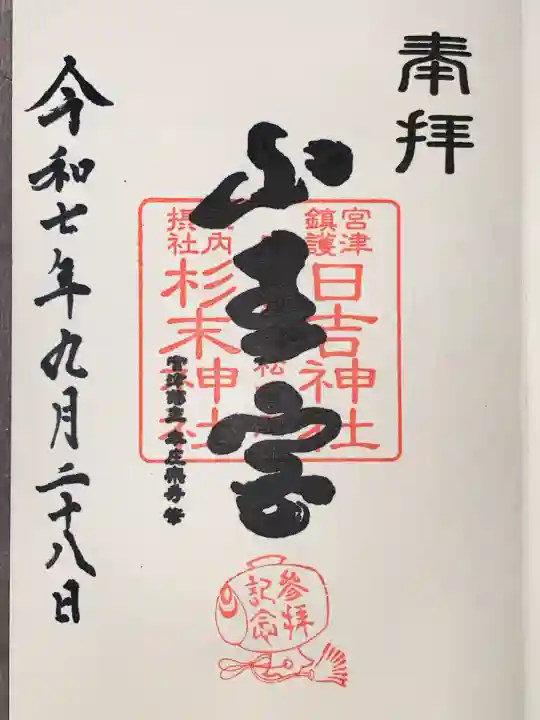 奉拝
山王宮
宮津
鎮護
日吉神社
境内
摂社
杉末神社
令和七年九月二十八日
参拝
記念